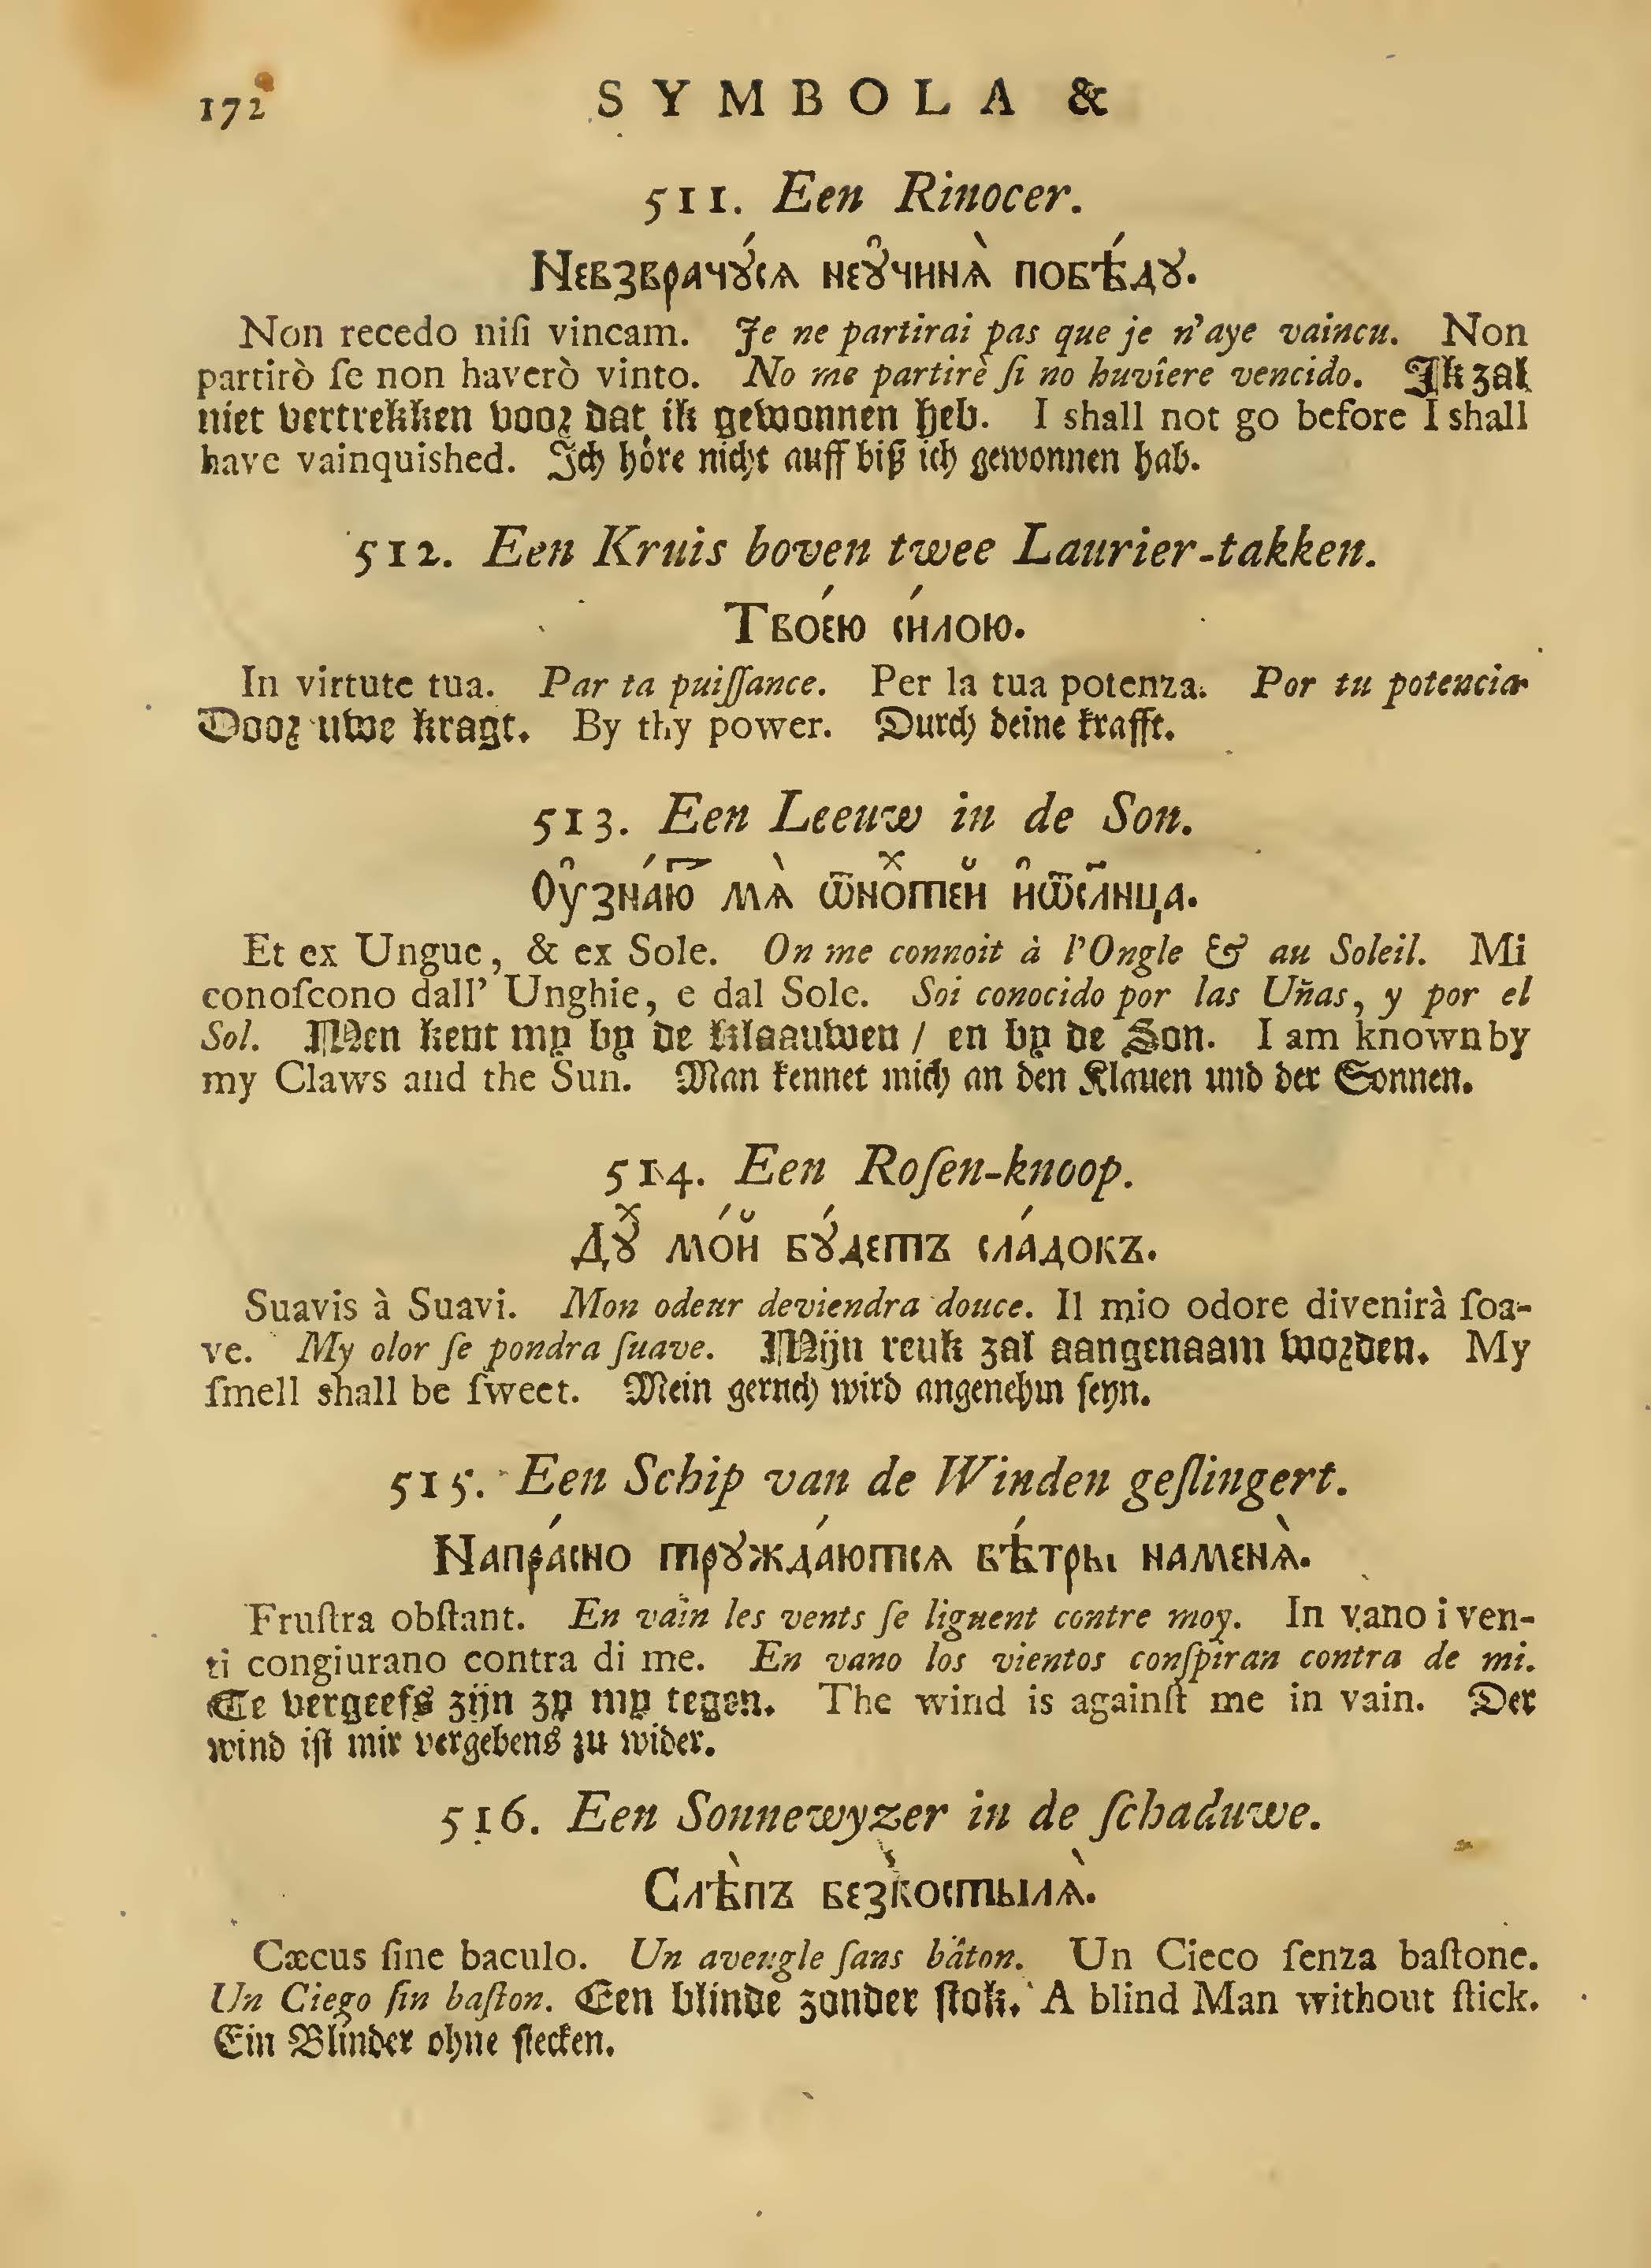 172 SYMBOLA &
511. Een Rinocer.
Невзврачꙋ́сѧ неꙋ̑чинѧ̀ побѣ́дꙋ.
Non recedo niſi vincam. Je ne partirai pas que je n'aye vaincu. Non
partirò ſe non haverò vinto. No me partirè ſi no huvîere vencido. Ik zal
niet vertrekken vooꝛ dat ik gewonnen heb. I shall not go before I shall
have vainquished. Ich höre nicht auff biß ich gewonnen hab.
512. Een Kruis boven twee Laurier-takken.
Твоє́ю си́лою.
In virtute tua. Par ta puiſſance. Per la tua potenza. Por tu potencia
Dooꝛ uwe kragt. By thy power. Durch deine krafft.
513. Een Leeuw in de Son.
Оу̑зна́ю҇ мѧ̀ ѿно̽тей и̑ѿсл҃нца.
Et ex Ungue, & ex Sole. On me connoit à l'Ongle & au Soleil. Mi
conoſcono dall' Unghie, e dal Sole. Soi conocido por las Uñas, y por el
Sol. Men kent my by de klaauwen / en by de Son. I am known by
my Claws and the Sun. Man kennet mich an den Klauen und der Sonnen.
514. Een Roſen-knoop.
Дꙋ̽ мо́й бꙋ́детъ сла́докъ.
Suavis à Suavi. Mon odeur deviendra douce. Il mio odore divenirà ſoa-
ve. My olor ſe pondra ſuave. Mijn reuk zal aangenaam woꝛden. My
ſmell shall be ſweet. Mein geruch wird angenehm ſeyn.
515. Een Schip van de Winden geſlingert.
Напра́сно трꙋжда́ютсѧ вѣ́тры наменѧ̀.
Fruſtra obſtant. En vain les vents ſe liguent contre moy. In vano i ven-
ti congiurano contra di me. En vano los vientos conſpiran contra de mi.
Te vergeefs zijn zy my tegen. The wind is againſt me in vain. Der
wind iſt mir vergebens zu wider.
516. Een Sonnewyzer in de ſchaduwe.
Слѣ̀пъ безкостылѧ̀.
Cæcus ſine baculo. Un aveugle ſans bâton. Un Cieco ſenza baſtone.
Un Ciego ſin baſton. Een blinde zonder ſtok. A blind Man without ſtick.
Ein Blinder ohne ſtecken.